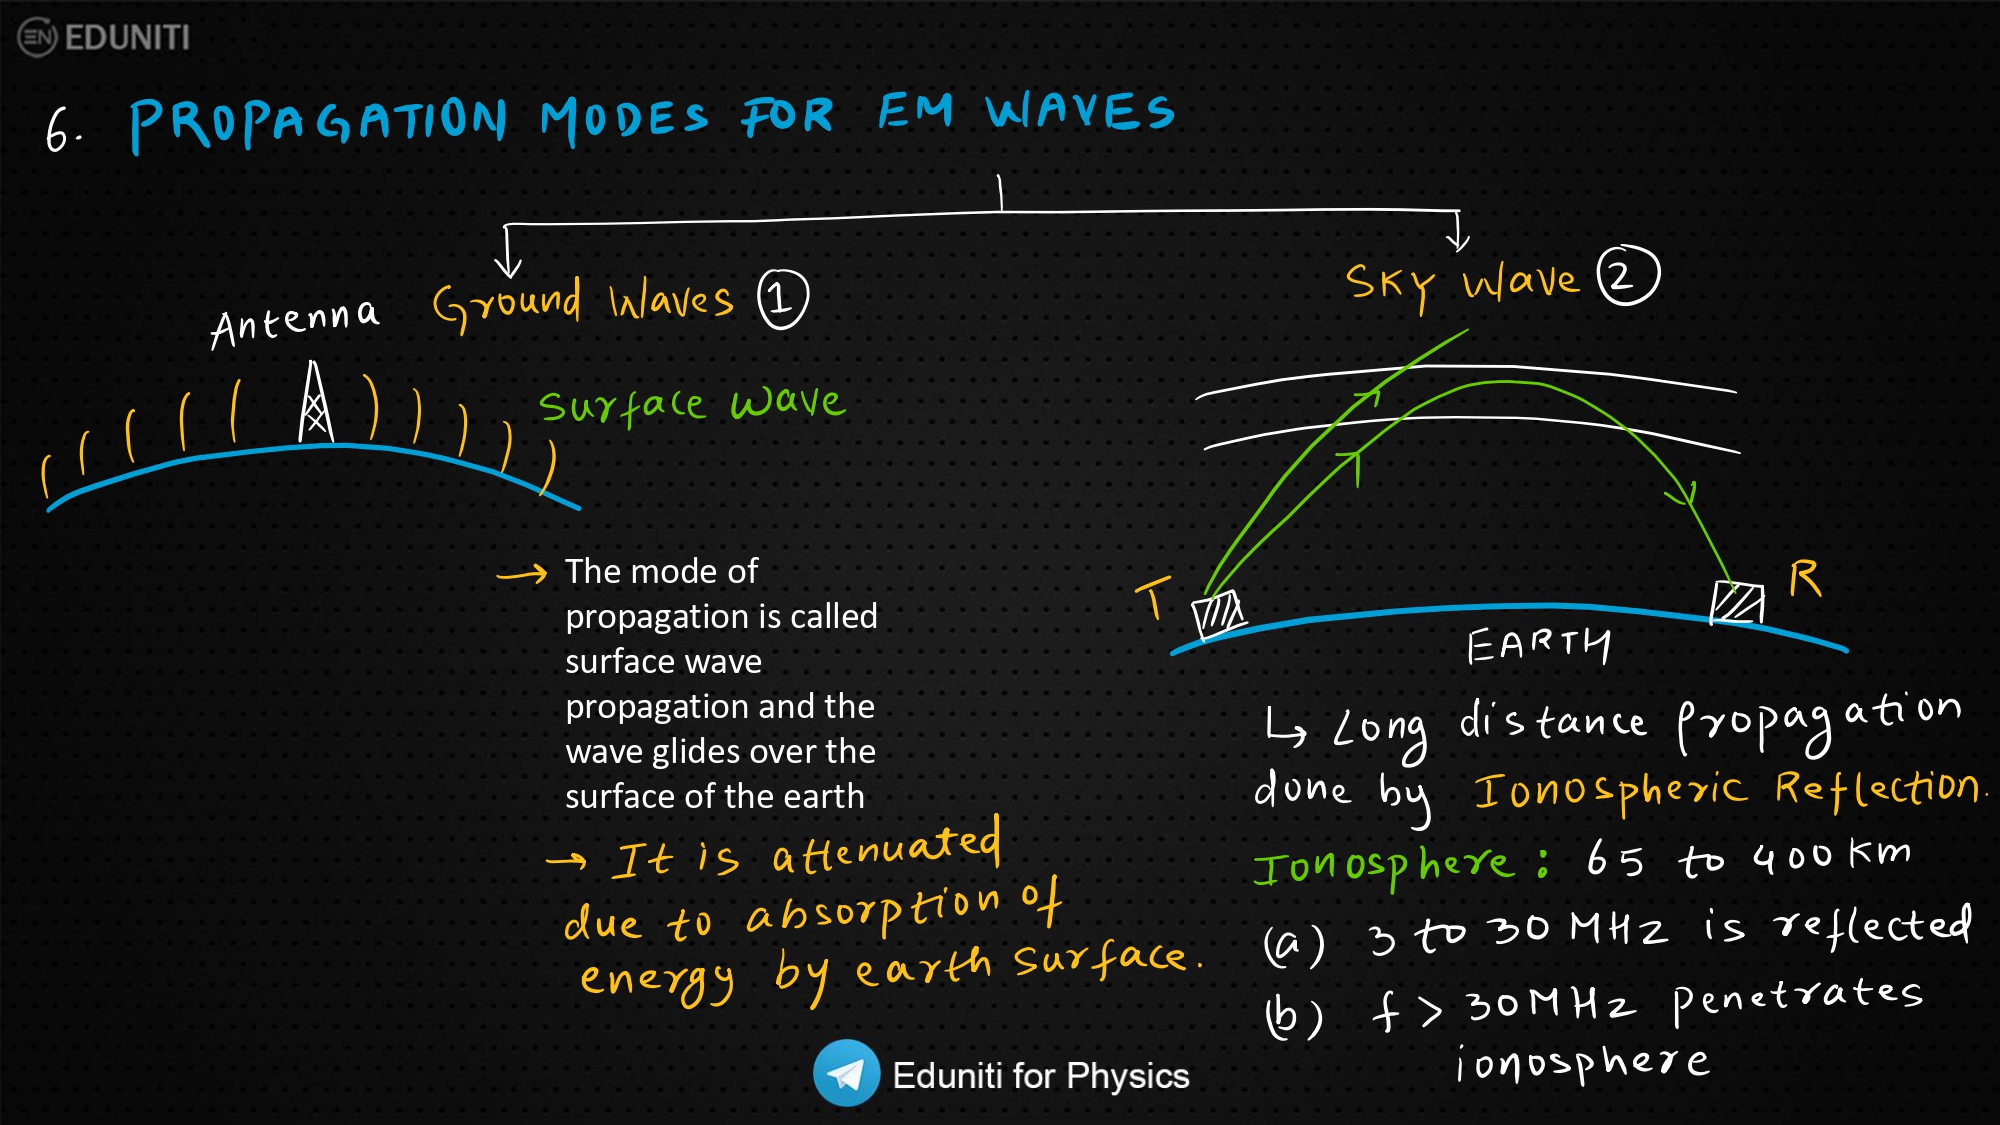 EN EDUNITI
6. PROPAGATION MODES FOR EM WAVES
Ground Waves 1
Antenna
Surface wave
The mode of
propagation is called
surface wave
propagation and the
wave glides over the
surface of the earth
→ It is attenuated
due to absorption of
energy by earth surface.
SKY Wave 2
T
R
EARTH
↳ Long distance Propagation
done by Ionospheric Reflection.
Ionosphere: 65 to 400 Km
(a) 3 to 30 MHz is reflected
(b) f > 30MHz penetrates
ionosphere
Eduniti for Physics